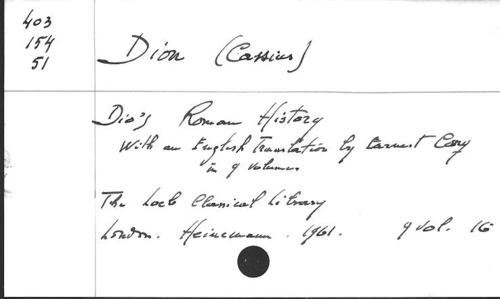 403
154
51
Dion (Cassius)
Dio's Roman History
With an English Translation by Earnest Cary
in 9 volumes
The Loeb Classical Library
London. Heinemann. 1961. 9 vol. 16